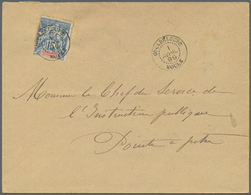 GUADELOUPE
1
96
15
Monsieur le Chef du Service de
l'Instruction publique
Pointe à pitre